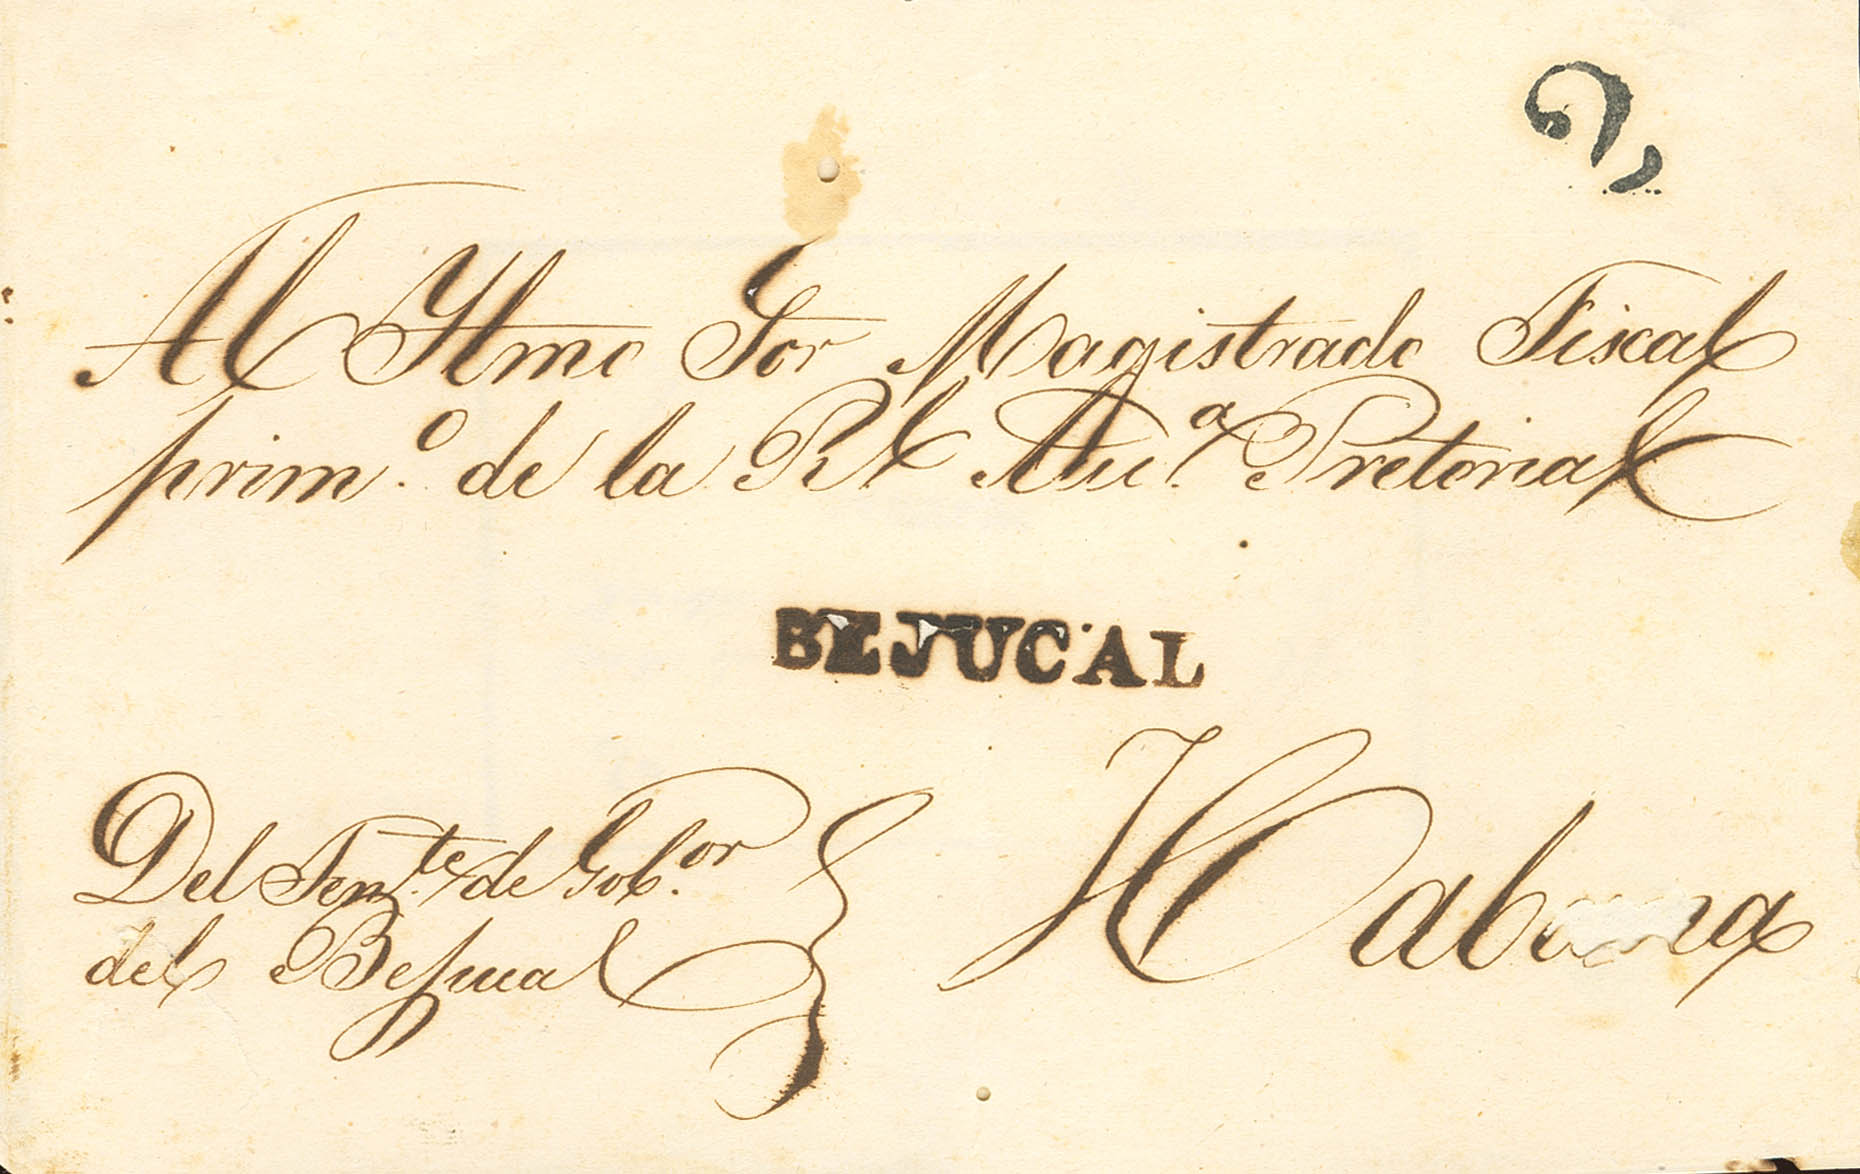 Al Ylmo Sor Magistrado Fiscal
prim.o de la Rl Au.a Pretorial
BEJUCAL
Del Ten.te de Gob.or
del Bejucal
Habana